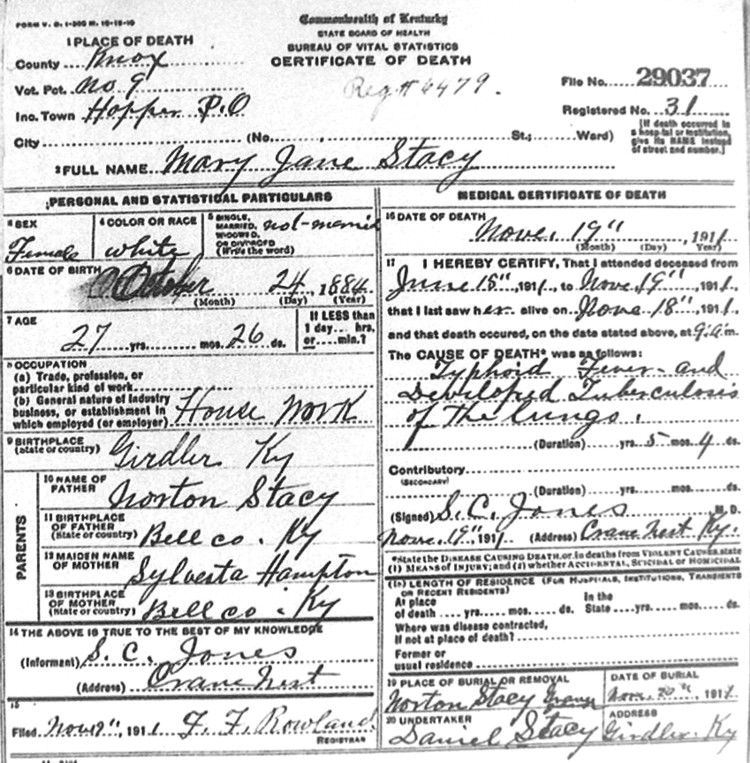 FORM V. S. 1-300 M. 10-18-10
Commonwealth of Kentucky
STATE BOARD OF HEALTH
BUREAU OF VITAL STATISTICS
CERTIFICATE OF DEATH
1 PLACE OF DEATH
County Knox
Vot. Pct. No 9
Inc. Town Hopper P.O
Reg # 6479.
File No. 29037
Registered No. 31
City (No. St.; Ward)
[If death occurred in a hospital or institution, give its NAME instead of street and number.]
2 FULL NAME Mary Jane Stacy
PERSONAL AND STATISTICAL PARTICULARS
3 SEX Female
4 COLOR OR RACE white
5 SINGLE, MARRIED, WIDOWED, OR DIVORCED (Write the word) not-married
6 DATE OF BIRTH October 24 1884
(Month) (Day) (Year)
7 AGE
27 yrs. mos. 26 ds.
If LESS than 1 day hrs. or min.?
8 OCCUPATION
(a) Trade, profession, or particular kind of work
(b) General nature of industry business, or establishment in which employed (or employer) House Work
9 BIRTHPLACE
(State or country) Girdler Ky
PARENTS
10 NAME OF FATHER Norton Stacy
11 BIRTHPLACE OF FATHER
(State or country) Bell co. Ky
12 MAIDEN NAME OF MOTHER Sylvesta Hampton
13 BIRTHPLACE OF MOTHER
(State or country) Bell co. Ky
14 THE ABOVE IS TRUE TO THE BEST OF MY KNOWLEDGE
(Informant) S. C. Jones
(Address) Crane Nest
15
Filed Nov 19", 1911 F. F. Rowland
REGISTRAR
MEDICAL CERTIFICATE OF DEATH
16 DATE OF DEATH
Nove. 19", 1911
(Month) (Day) (Year)
17 I HEREBY CERTIFY, That I attended deceased from
June 15", 1911, to Nove. 19", 1911,
that I last saw her alive on Nove. 18", 1911,
and that death occured, on the date stated above, at 9 a. m.
The CAUSE OF DEATH* was as follows:
Typhoid Fever and
Developed Tuberculosis
of the lungs.
(Duration) yrs. 5 mos. 4 ds.
Contributory
(SECONDARY)
(Duration) yrs. mos. ds.
(Signed) S. C. Jones M. D.
Nove. 19", 1911 (Address) Crane Nest Ky.
*State the DISEASE CAUSING DEATH, or in deaths from VIOLENT CAUSES, state
(1) MEANS OF INJURY; and (2) whether ACCIDENTAL, SUICIDAL OR HOMICIDAL
18 LENGTH OF RESIDENCE (FOR HOSPITALS, INSTITUTIONS, TRANSIENTS
OR RECENT RESIDENTS)
At place of death yrs. mos. ds. In the State yrs. mos. ds.
Where was disease contracted,
If not at place of death?
Former or
usual residence
19 PLACE OF BURIAL OR REMOVAL
Norton Stacy
DATE OF BURIAL
Nov. 20", 1911
20 UNDERTAKER
Daniel Stacy
ADDRESS
Girdler Ky